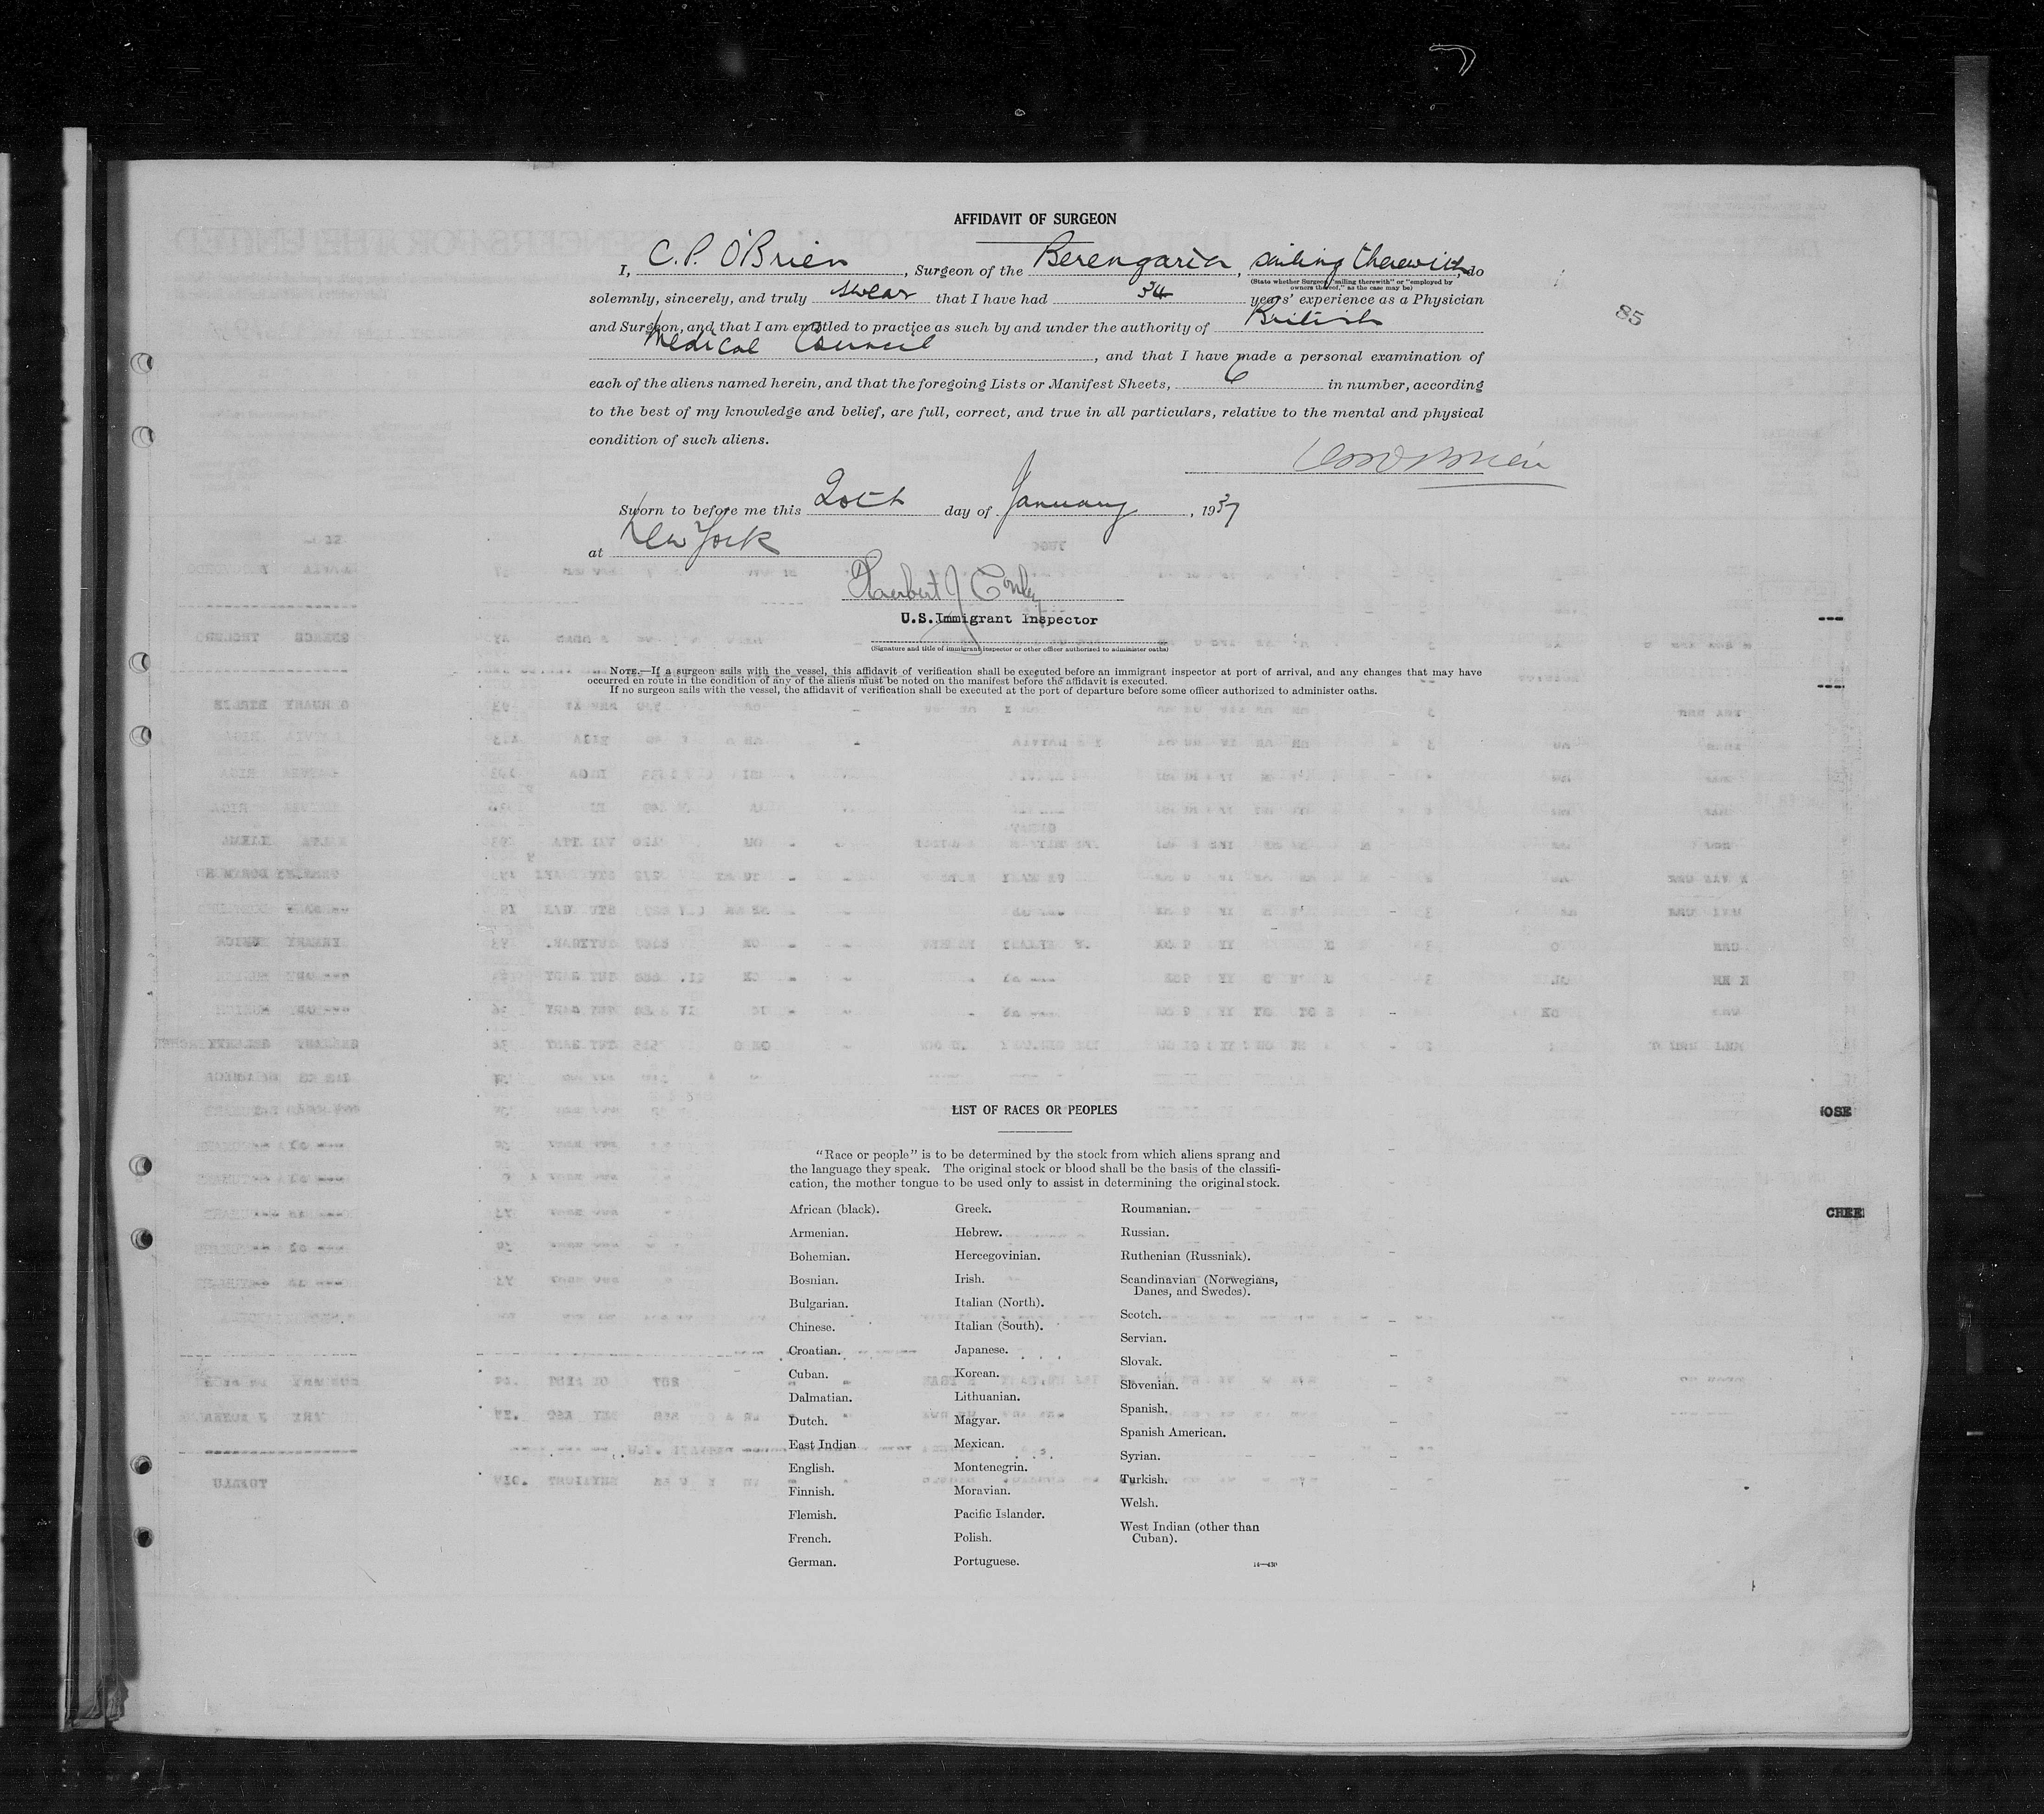 AFFIDAVIT OF SURGEON
I, C. P. O'Brien, Surgeon of the Berengaria, sailing therewith, do
(State whether Surgeon "sailing therewith" or "employed by
owners thereof," as the case may be)
solemnly, sincerely, and truly swear that I have had 34 years' experience as a Physician
and Surgeon, and that I am entitled to practice as such by and under the authority of British
Medical Council, and that I have made a personal examination of
each of the aliens named herein, and that the foregoing Lists or Manifest Sheets, 6 in number, according
to the best of my knowledge and belief, are full, correct, and true in all particulars, relative to the mental and physical
condition of such aliens.
85
Sworn to before me this 20th day of January, 1937
at New York
Herbert J Conley
U.S.Immigrant Inspector
(Signature and title of immigrant inspector or other officer authorized to administer oaths)
NOTE.—If a surgeon sails with the vessel, this affidavit of verification shall be executed before an immigrant inspector at port of arrival, and any changes that may have
occurred en route in the condition of any of the aliens must be noted on the manifest before the affidavit is executed.
If no surgeon sails with the vessel, the affidavit of verification shall be executed at the port of departure before some officer authorized to administer oaths.
LIST OF RACES OR PEOPLES
"Race or people" is to be determined by the stock from which aliens sprang and
the language they speak. The original stock or blood shall be the basis of the classifi-
cation, the mother tongue to be used only to assist in determining the original stock.
African (black).
Armenian.
Bohemian.
Bosnian.
Bulgarian.
Chinese.
Croatian.
Cuban.
Dalmatian.
Dutch.
East Indian
English.
Finnish.
Flemish.
French.
German.
Greek.
Hebrew.
Hercegovinian.
Irish.
Italian (North).
Italian (South).
Japanese.
Korean.
Lithuanian.
Magyar.
Mexican.
Montenegrin.
Moravian.
Pacific Islander.
Polish.
Portuguese.
Roumanian.
Russian.
Ruthenian (Russniak).
Scandinavian (Norwegians,
Danes, and Swedes).
Scotch.
Servian.
Slovak.
Slovenian.
Spanish.
Spanish American.
Syrian.
Turkish.
Welsh.
West Indian (other than
Cuban).
OSE
CHEE